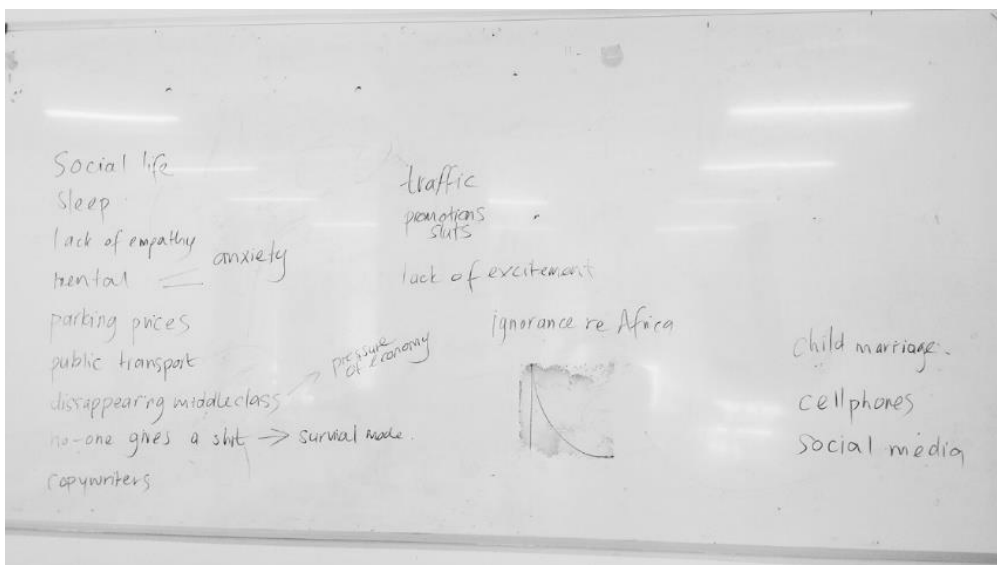 Social life
Sleep
lack of empathy
mental
anxiety
parking prices
public transport
dissappearing middleclass
pressure
of economy
no-one gives a shit → survial mode.
copywriters
traffic
promotions
sluts
lack of excitement
ignorance re Africa
child marriage.
cellphones
social media